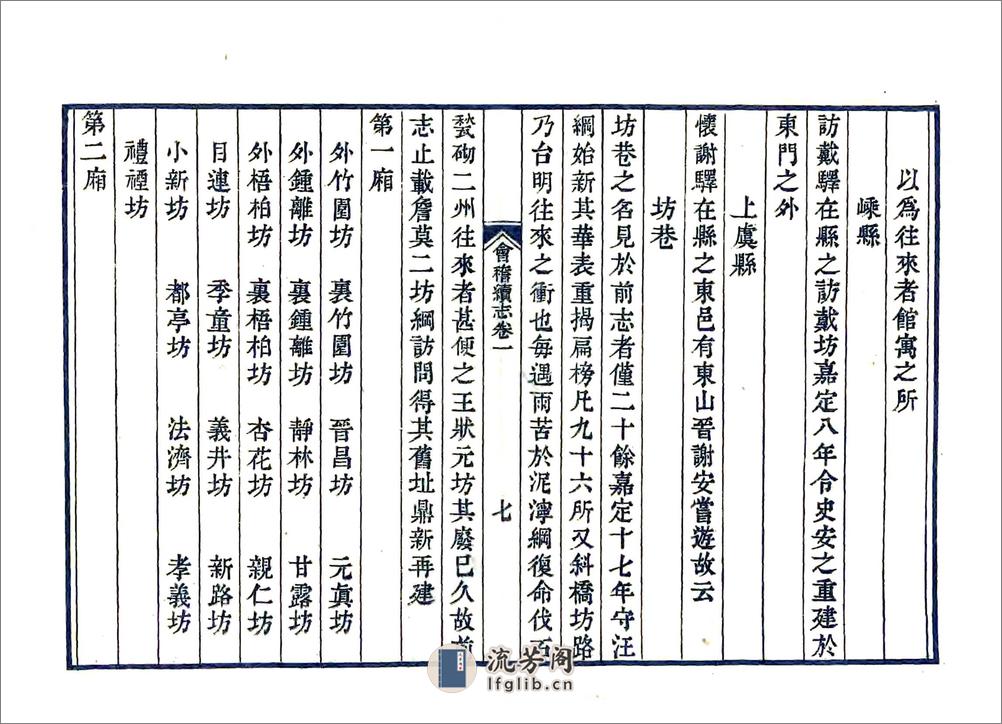 以爲往來者館寓之所
嵊縣
訪戴驛在縣之訪戴坊嘉定八年令史安之重建於
東門之外
上虞縣
懷謝驛在縣之東邑有東山晉謝安嘗遊故云
坊巷
坊巷之名見於前志者僅二十餘嘉定十七年守汪
綱始新其華表重揭扁榜凡九十六所又斜橋坊路
乃台明往來之衝也每遇雨苦於泥濘綱復命伐石
會稽續志卷一
七
甃砌二州往來者甚便之王狀元坊其廢已久故前
志止載詹莫二坊綱訪問得其舊址鼎新再建
第一廂
外竹園坊 裏竹園坊 晉昌坊 元眞坊
外鍾離坊 裏鍾離坊 靜林坊 甘露坊
外梧柏坊 裏梧柏坊 杏花坊 親仁坊
目連坊 季童坊 義井坊 新路坊
小新坊 都亭坊 法濟坊 孝義坊
禮禋坊
第二廂
流芳阁
lfglib.cn